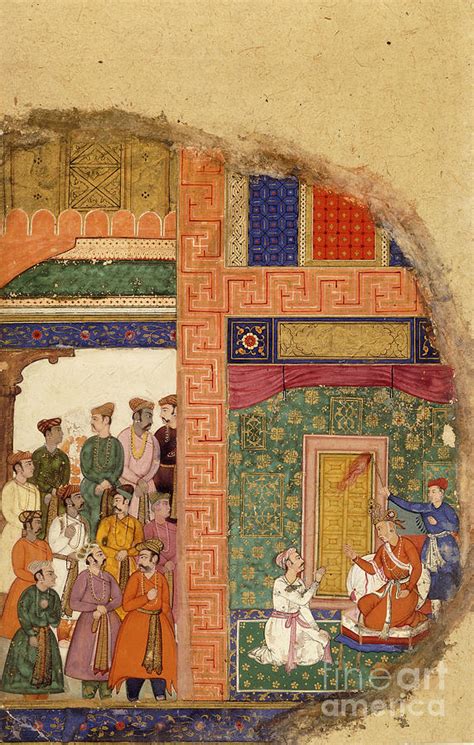 fineart
america